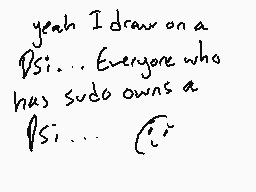 yeah I draw on a
DSi... Everyone who
has sudo owns a
DSi... (: